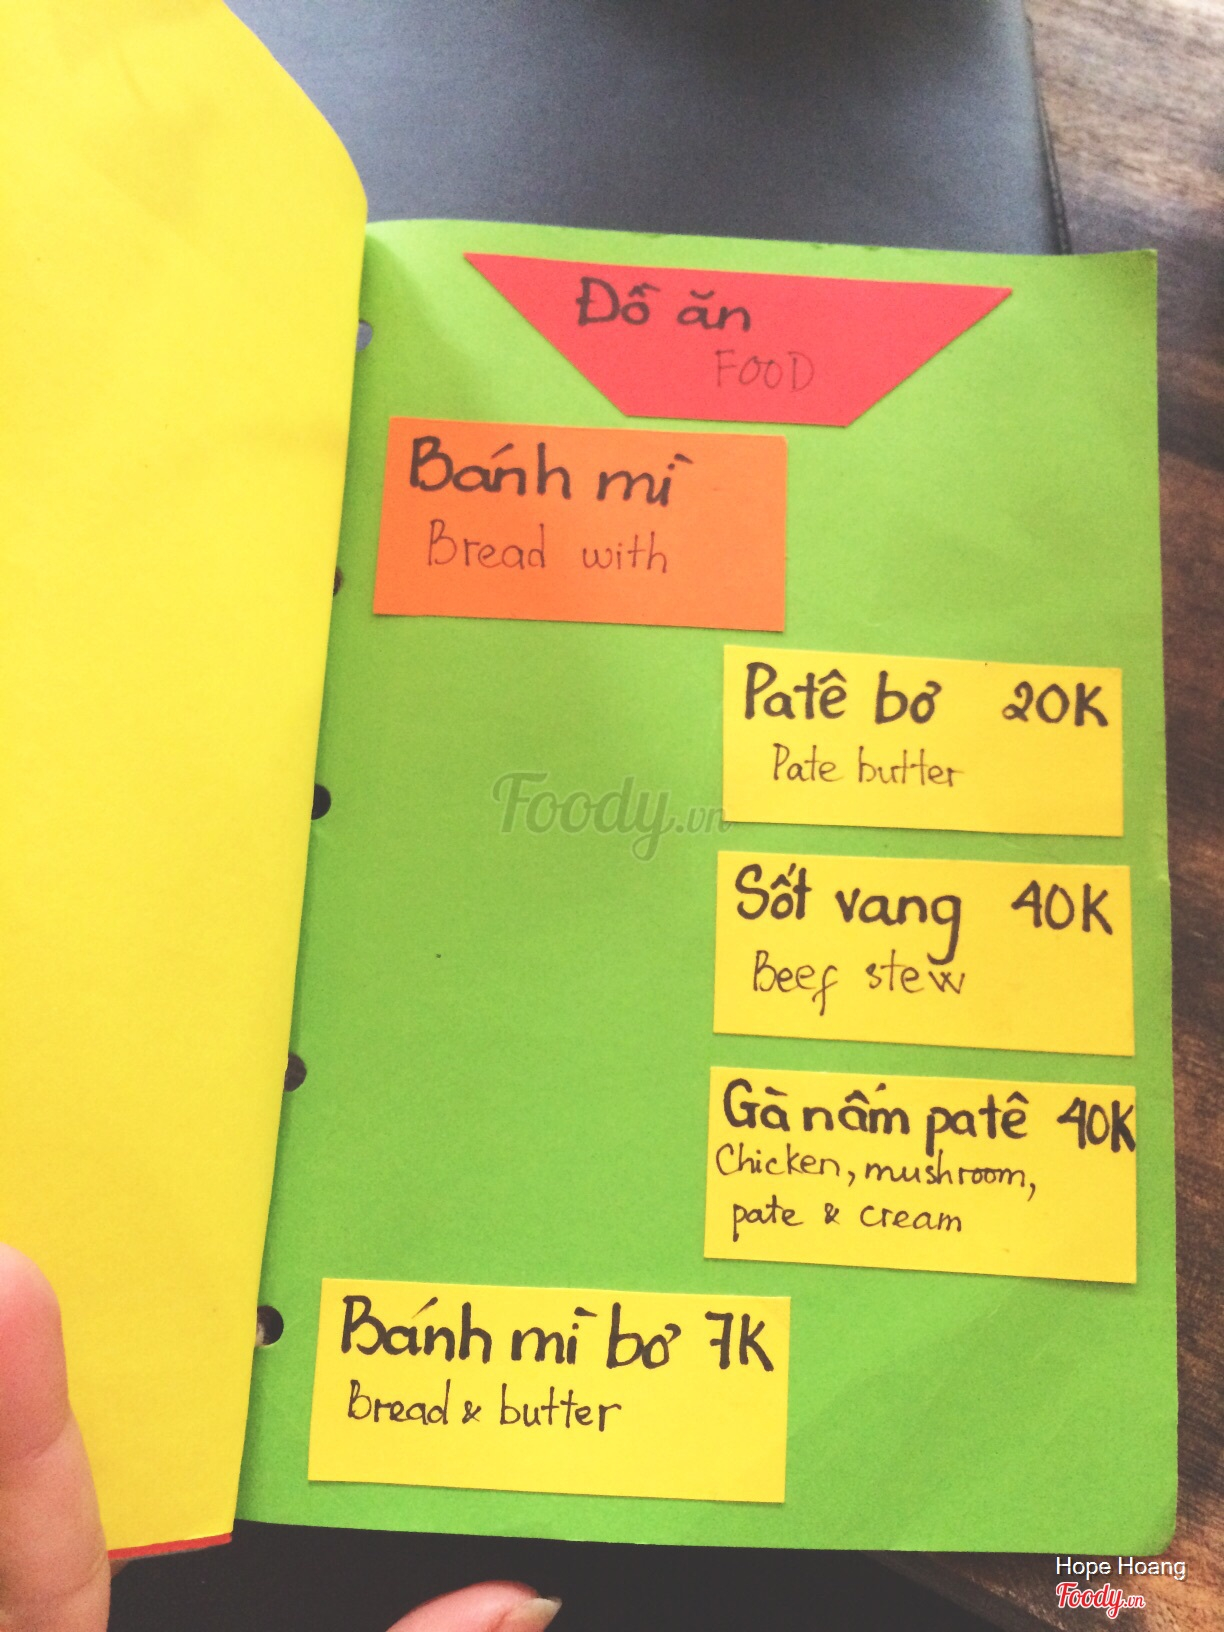 Đồ ăn
FOOD
Bánh mì
Bread with
Patê bơ 20K
Pate butter
Foody.vn
Sốt vang 40K
Beef stew
Gà nấm patê 40K
Chicken, mushroom,
pate & cream
Bánh mì bơ 7K
Bread & butter
Hope Hoang
Foody.vn